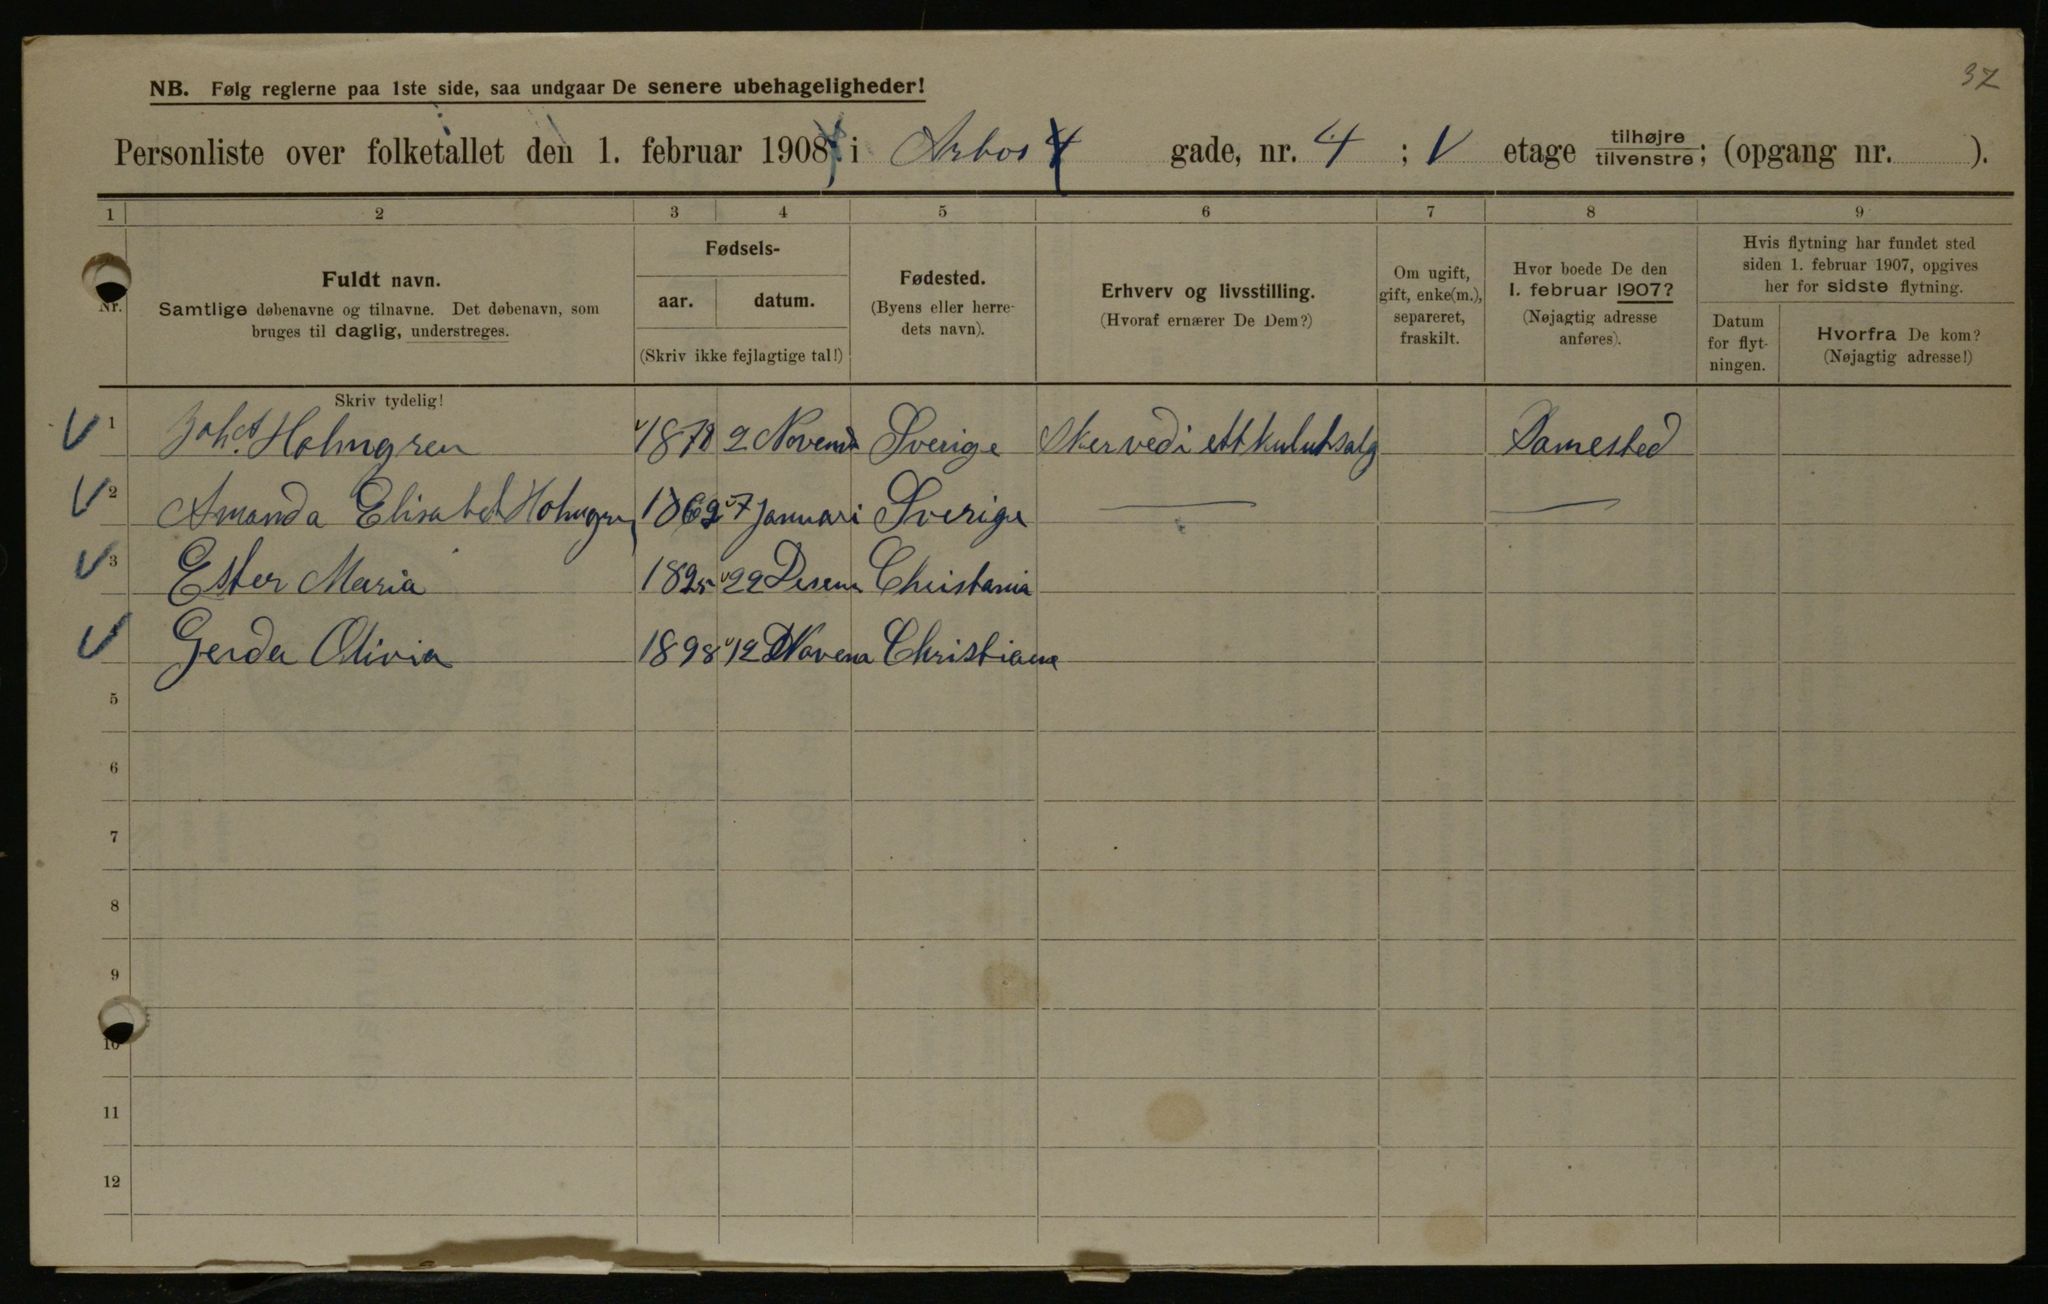 37
NB. Følg reglerne paa 1ste side, saa undgaar De senere ubehageligheder!
Personliste over folketallet den 1. februar 1908 i Arbos gade, nr. 4 ; V etage tilhøjre tilvenstre; (opgang nr. ).
1 2 3 4 5 6 7 8 9
Nr.
Fuldt navn.
Samtlige døbenavne og tilnavne. Det døbenavn, som
bruges til daglig, understreges.
Fødsels-
aar. datum.
(Skriv ikke fejlagtige tal!)
Fødested.
(Byens eller herre-
dets navn).
Erhverv og livsstilling.
(Hvoraf ernærer De Dem?)
Om ugift,
gift, enke(m.),
separeret,
fraskilt.
Hvor boede De den
1. februar 1907?
(Nøjagtig adresse
anføres).
Hvis flytning har fundet sted
siden 1. februar 1907, opgives
her for sidste flytning.
Datum
for flyt-
ningen.
Hvorfra De kom?
(Nøjagtig adresse!)
Skriv tydelig!
1 Holmgren 2 Sverige Samested
2 Amanda Elisabet Holmgren 1869 7 Januari Sverige
3 Ester Maria 1895 22 Desem Christania
Gerda Olivia 1898 12 Novem Christiana
5
6
7
8
9
10
11
12